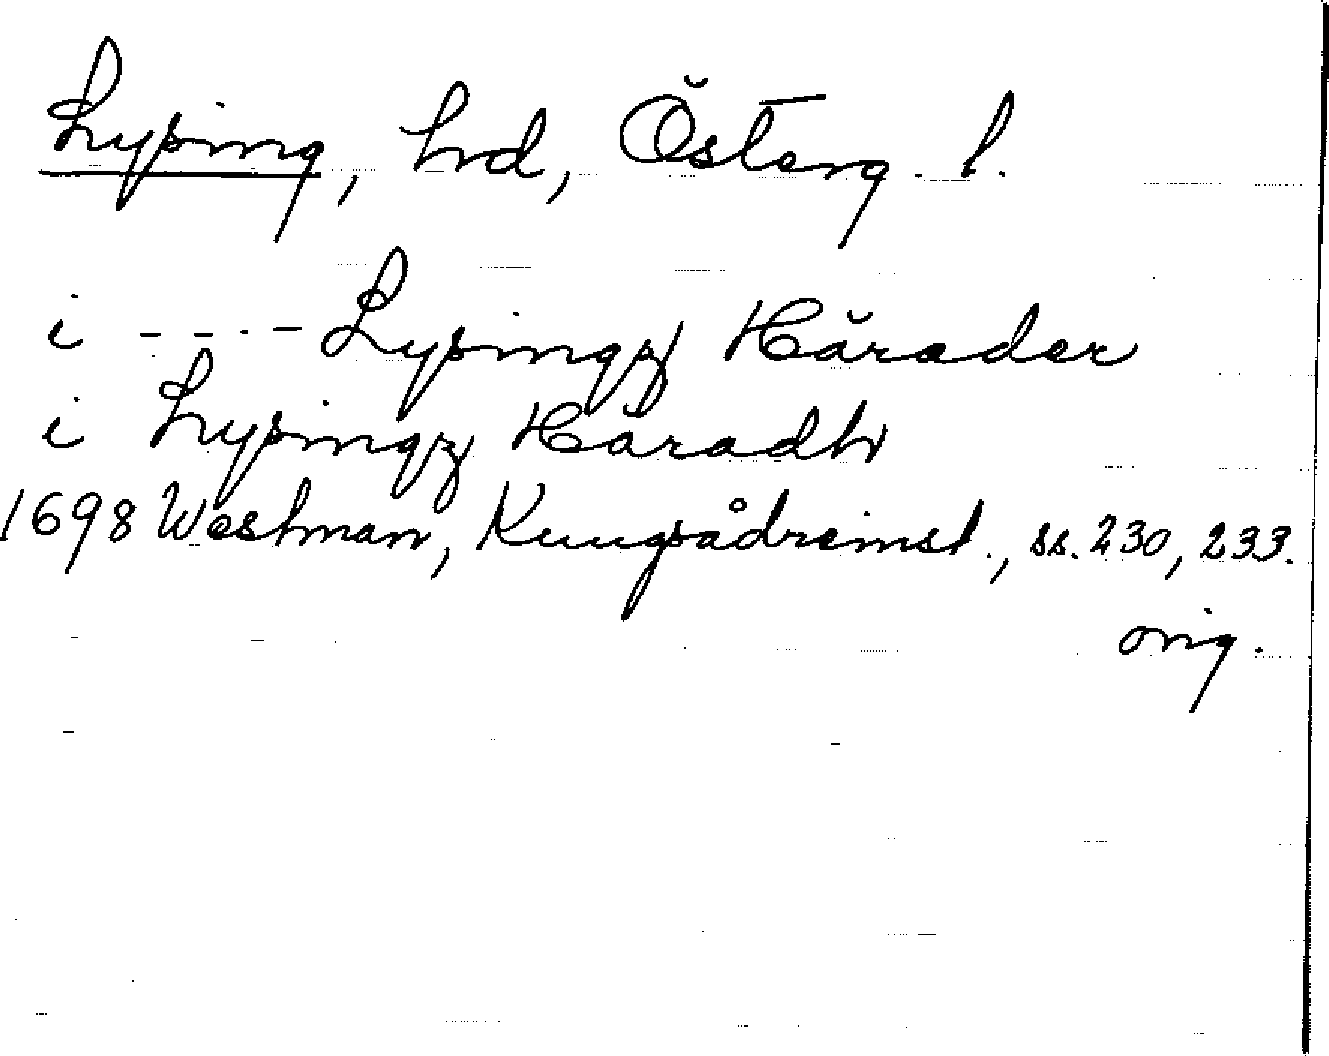 Lysing, hrd, Österg. l.
i - - - - Lysingz Härader
i Lysingz Häradh
1698 Westman, Kungsådreinst., ss. 230, 233.
orig.